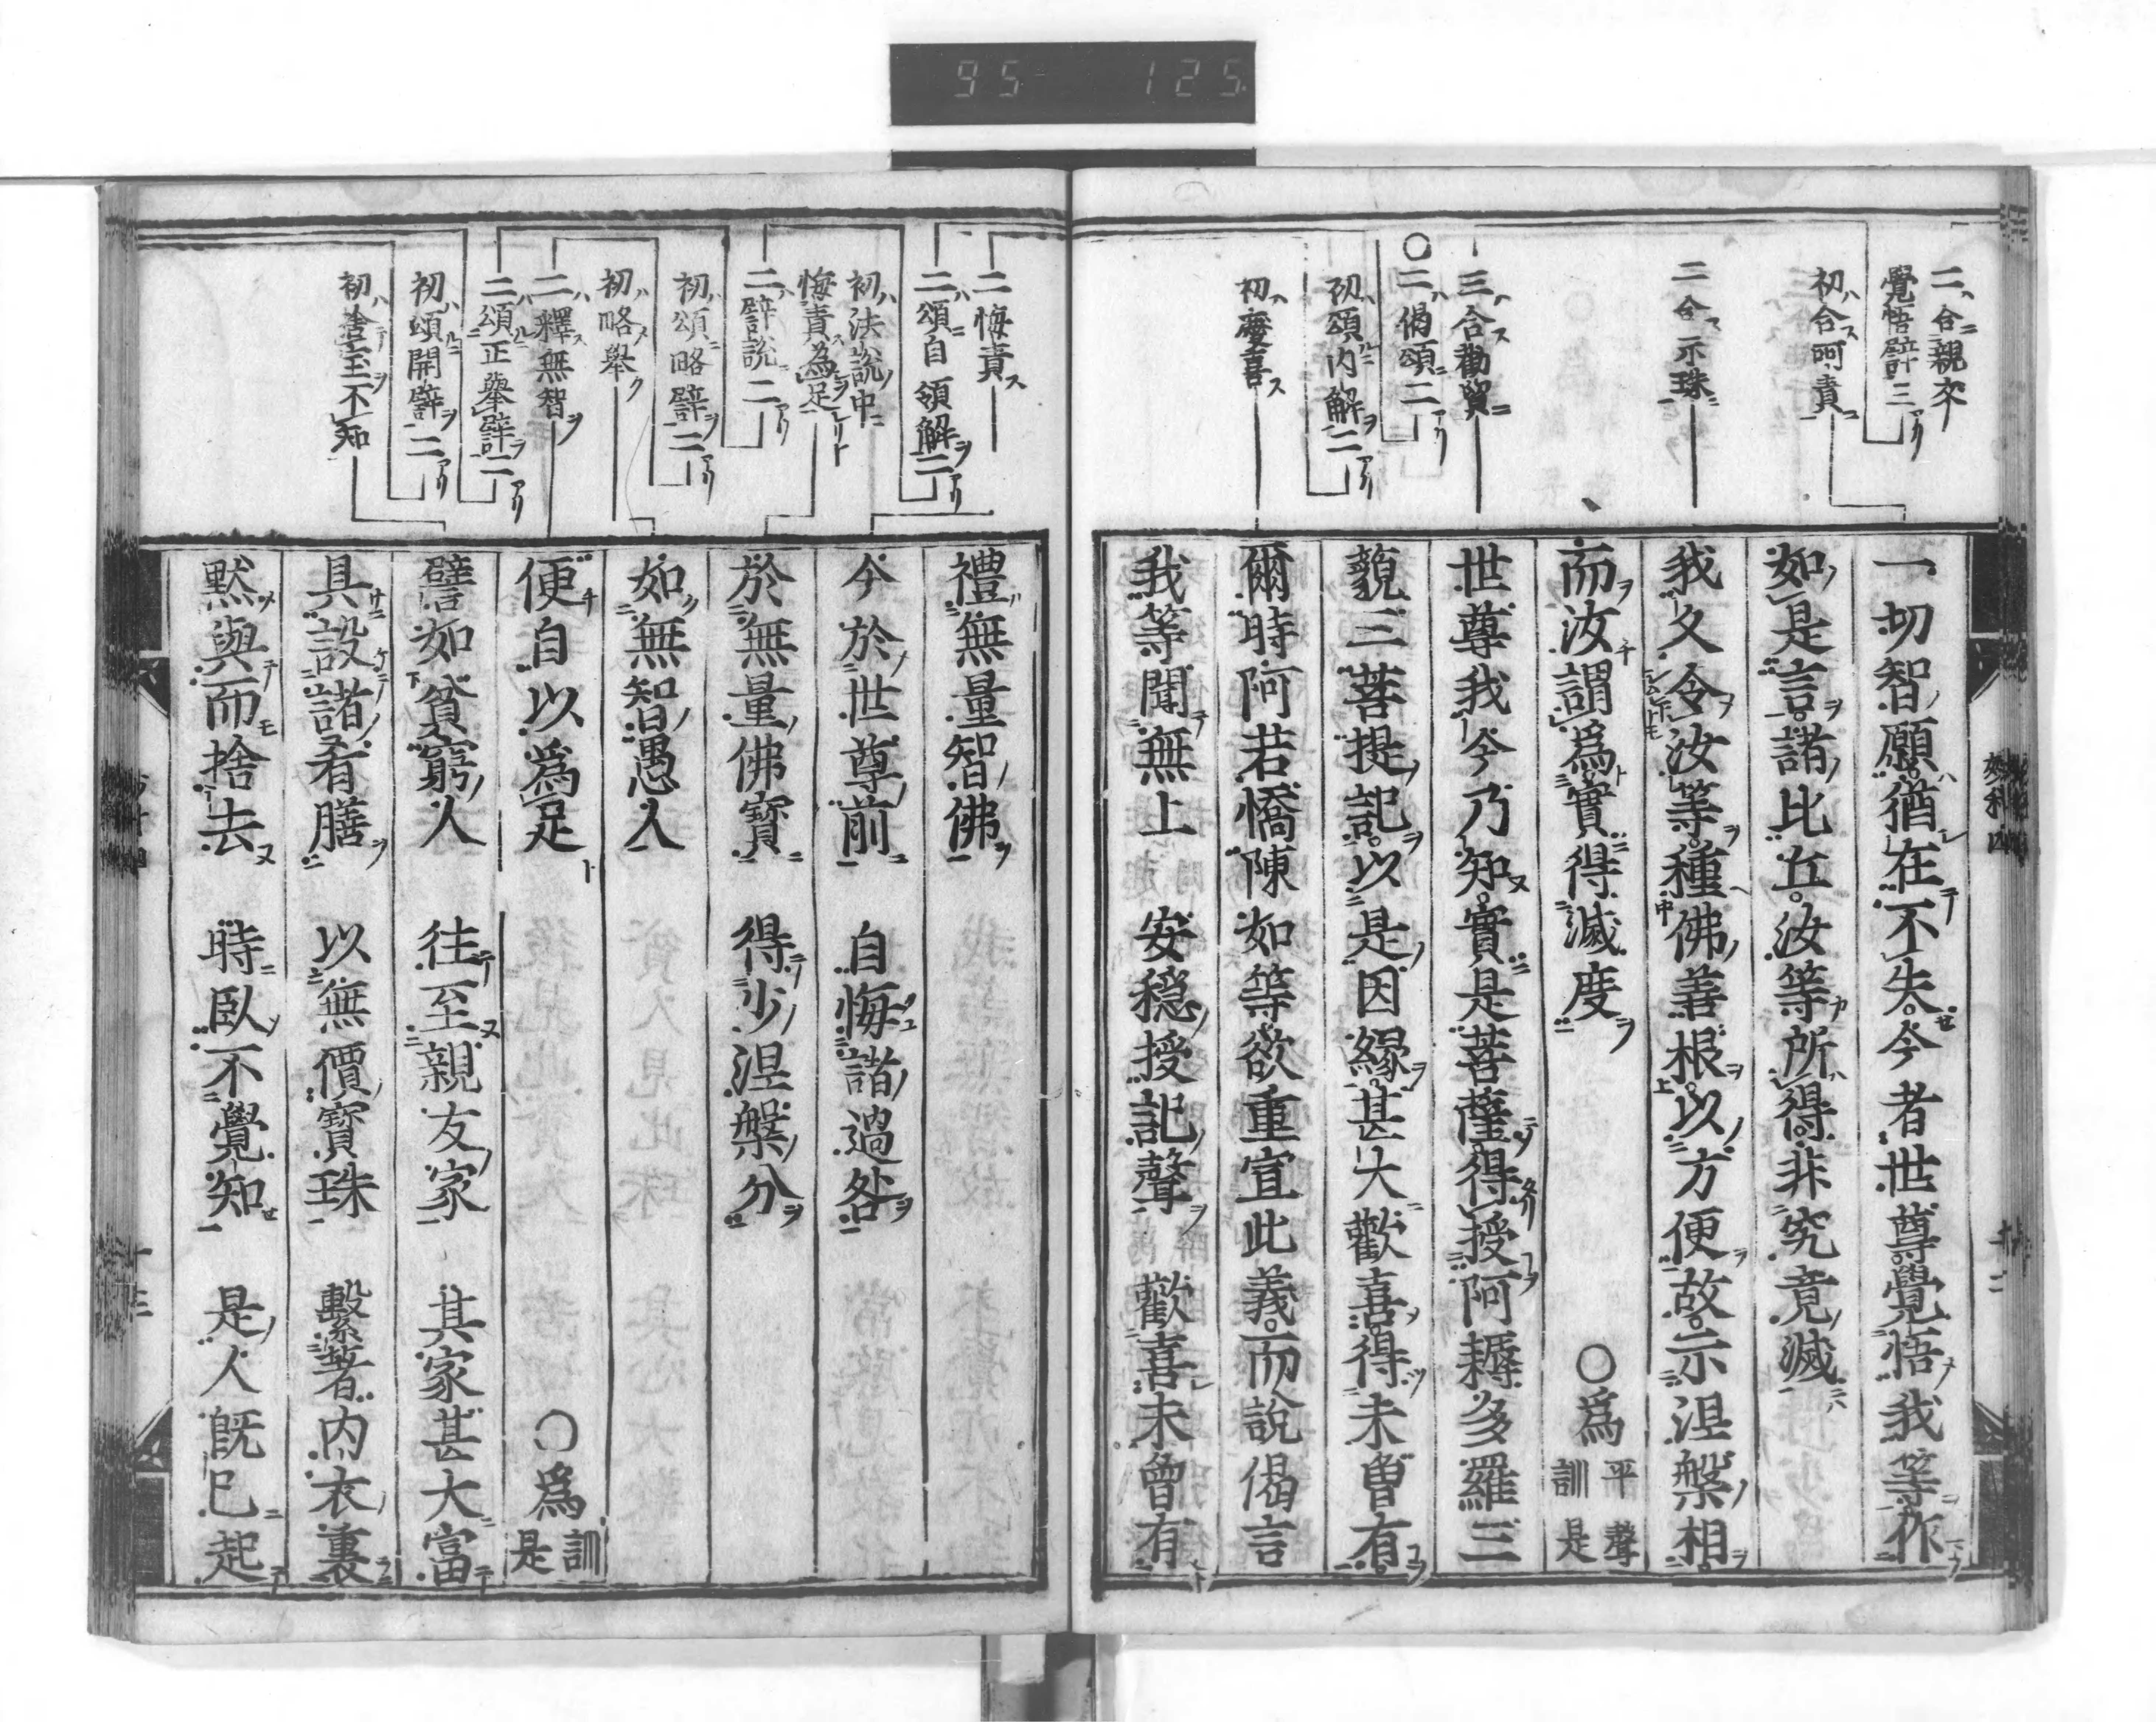 95 125
二合親友
覺悟譬三
初合呵責
二合示珠
三合勸貿
〇二偈頌二
初頌内解二
初慶喜
一切智願猶在不失今者世尊覺悟我等作
如是言諸比丘汝等所得非究竟滅
我久令汝等種佛善根以方便故示涅槃相
而汝謂爲實得滅度 〇爲平聲訓是
世尊我今乃知實是菩薩得授阿耨多羅三
藐三菩提記以是因緣甚大歡喜得未曾有
爾時阿若憍陳如等欲重宣此義而說偈言
我等聞無上 安穩授記聲 歡喜未曾有
二悔責
二頌自領解二
初法說中
悔責為足
二譬說二
初頌略譬二
初略擧
二釋無智
二頌正擧譬二
初頌開譬二
初捨至不知
禮無量智佛
今於世尊前 自悔諸過咎
於無量佛寶 得少涅槃分
如無智愚人
便自以爲足 〇爲訓是
譬如貧窮人 往至親友家 其家甚大富
具設諸肴膳 以無價寶珠 繫著内衣裏
默與而捨去 時臥不覺知 是人既已起